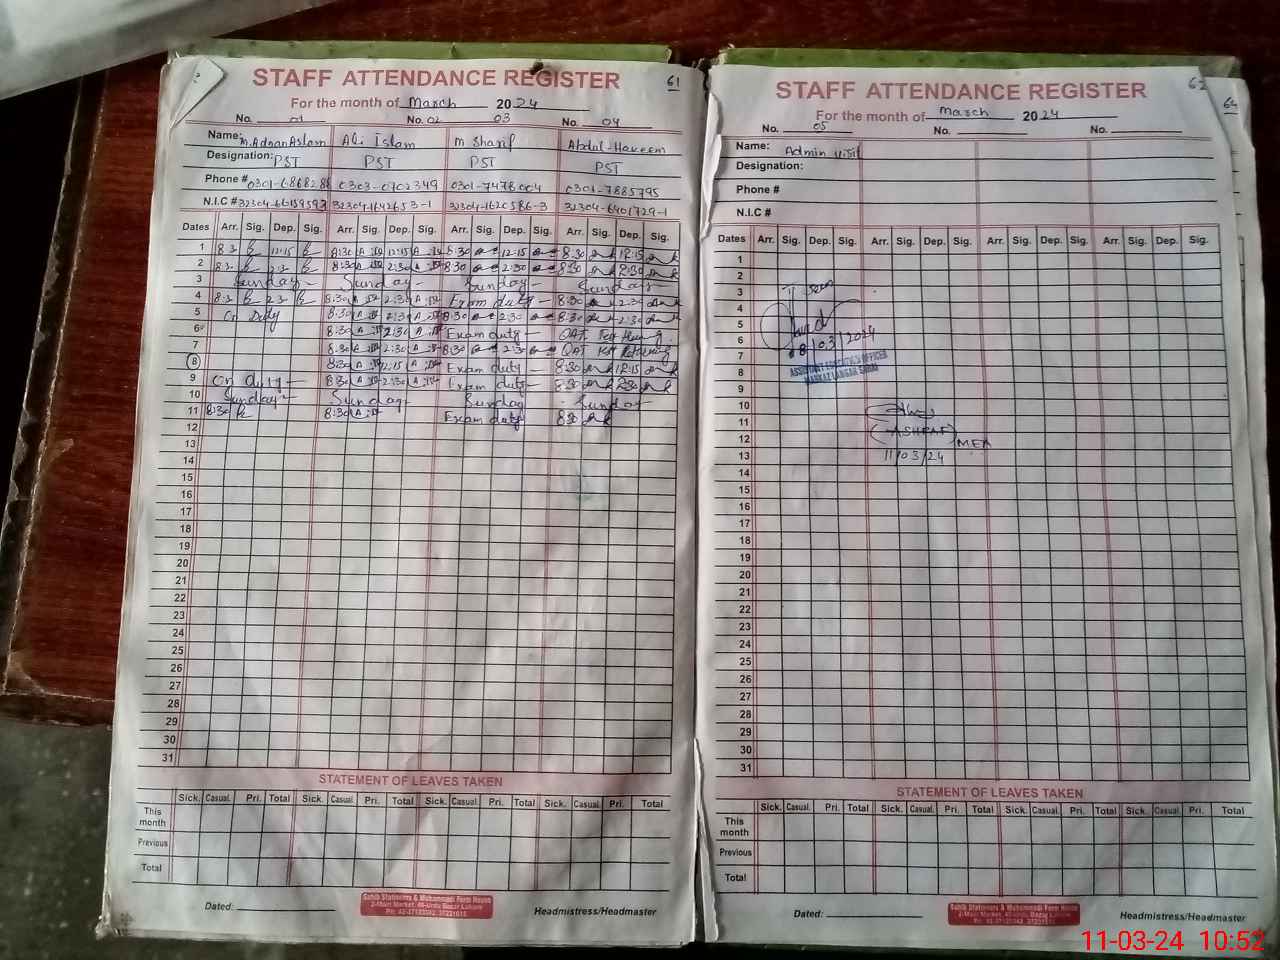 STAFF ATTENDANCE REGISTER 61
For the month of March 2024
No. 01 No. 02 03 No. 04
Name: M.Adnan Aslam Ali Islam M Sharif Abdul Hakeem
Designation: PST PST PST PST
Phone # 0303-0702349 0301-7478004 0301-7885795
N.I.C # 32304-1642653-1 32304-1620586-3 32304-6401729-1
Dates Arr. Sig. Dep. Sig. Arr. Sig. Dep. Sig. Arr. Sig. Dep. Sig. Arr. Sig. Dep. Sig.
1 8:3 12:15 8:30 12:15 8:30 12:15 8:30 12:15
2 8:3 2:3 8:30 2:30 8:30 2:30 8:30 2:30
3 Sunday Sunday Sunday Sunday
4 8:3 2:3 8:30 2:30 Exam duty 8:30 2:30
5 On Duty 8:30 2:30 8:30 2:30 8:30 2:30
6 8:30 2:30 Exam duty QAT
7 8:30 2:30 8:30 2:30 QAT
8 8:30 12:15 Exam duty 8:30 12:15
9 On duty 8:30 2:30 Exam duty 8:30 2:30
10 Sunday Sunday Sunday Sunday
11 8:30 8:30 Exam duty 8:30
12
13
14
15
16
17
18
19
20
21
22
23
24
25
26
27
28
29
30
31
STATEMENT OF LEAVES TAKEN
Sick. Casual. Pri. Total Sick. Casual. Pri. Total Sick. Casual. Pri. Total Sick. Casual. Pri. Total
This month
Previous
Total
Dated:
Sahib Stationers & Muhammadi Form House
2-Main Market, 40-Urdu Bazar Lahore
Headmistress/Headmaster
STAFF ATTENDANCE REGISTER 62
64
For the month of March 2024
No. 05 No. No.
Name: Admin visit
Designation:
Phone #
N.I.C #
Dates Arr. Sig. Dep. Sig. Arr. Sig. Dep. Sig. Arr. Sig. Dep. Sig. Arr. Sig. Dep. Sig.
1
2
3 seen
4
5
6 08/03/2024
7 ASSISTANT EDUCATION OFFICER
8 MARKAZ LANGAR SARAI
9
10
11
12 (ASHRAF) MEA
13 11/03/24
14
15
16
17
18
19
20
21
22
23
24
25
26
27
28
29
30
31
STATEMENT OF LEAVES TAKEN
Sick. Casual. Pri. Total Sick. Casual. Pri. Total Sick. Casual. Pri. Total Sick. Casual. Pri. Total
This month
Previous
Total
Dated:
Sahib Stationers & Muhammadi Form House
2-Main Market, 40-Urdu Bazar Lahore
Headmistress/Headmaster
11-03-24 10:52